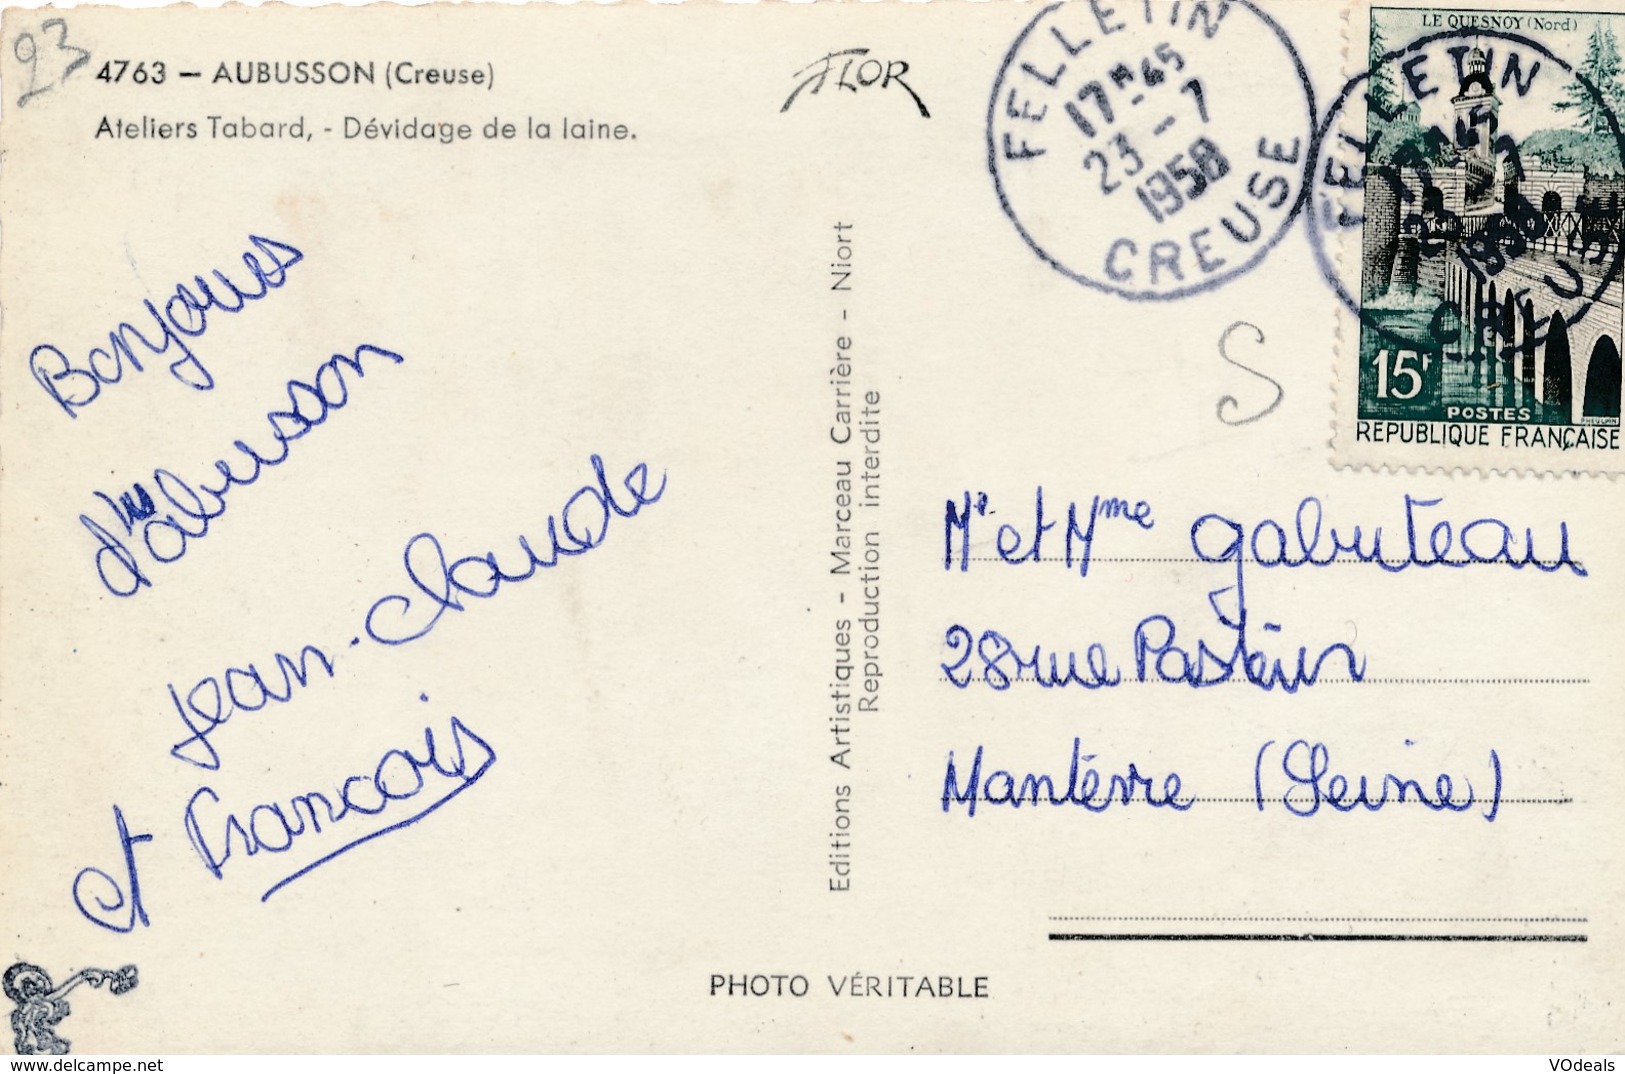 23
4763 — AUBUSSON (Creuse)
Ateliers Tabard, - Dévidage de la laine.
FLOR
FELLETIN
17H45
23 - 7
1958
CREUSE
LE QUESNOY (Nord)
FELLETIN
1958
CREUSE
15F
POSTES
REPUBLIQUE FRANÇAISE
S
Bonjours
d'abusson
Jean-claude
et Francois
Editions Artistiques - Marceau Carrière - Niort
Reproduction interdite
Mr et Mme gabuteau
28 rue Pasteur
Nanterre (Seine)
PHOTO VÉRITABLE
VOdeals